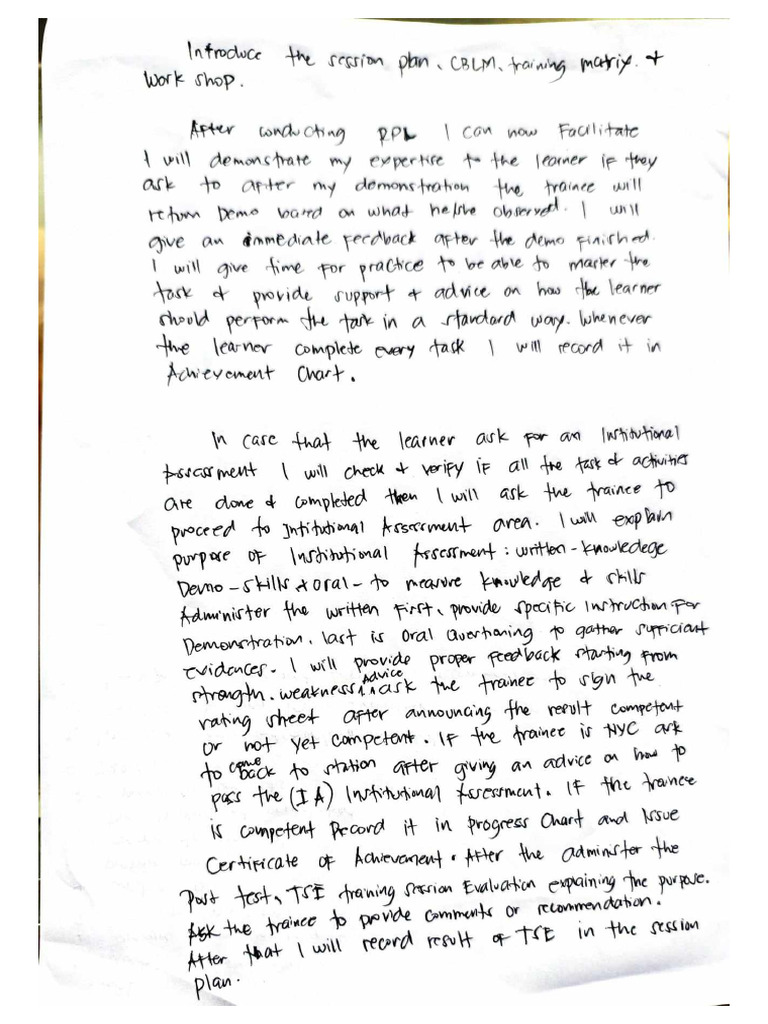 Introduce the session plan, CBLM, training matrix. +
Work shop.
After conducting RPL I can now Facilitate
I will demonstrate my expertise to the learner if they
ask to after my demonstration the trainee will
return Demo based on what he/she observed. I will
give an immediate feedback after the demo finished.
I will give time for practice to be able to master the
task & provide support + advice on how the learner
should perform the task in a standard way. Whenever
the learner complete every task I will record it in
Achievement Chart.
In case that the learner ask for an Institutional
Assessment I will check + verify if all the task & activities
are done & completed then I will ask the trainee to
proceed to Intitutional Assessment area. I will explain
purpose of Institutional Assessment : written - knowledege
Demo - skills + oral - to measure knowledge & skills
Administer the written first, provide specific Instruction For
Demonstration. last is Oral Questioning to gather sufficient
evidences. I will provide proper feedback starting from
strength. weakness, Advice ask the trainee to sign the
rating sheet after announcing the result competent
or not yet competent. If the trainee is NYC ask
to come back to station after giving an advice on how to
pass the (IA) Institutional Assessment. If the trainee
is competent Record it in Progress Chart and Issue
Certificate of Achievement. After the administer the
Post test, TSE training Session Evaluation explaining the purpose.
Ask the trainee to provide comments or recommendation.
After that I will record result of TSE in the session
plan.